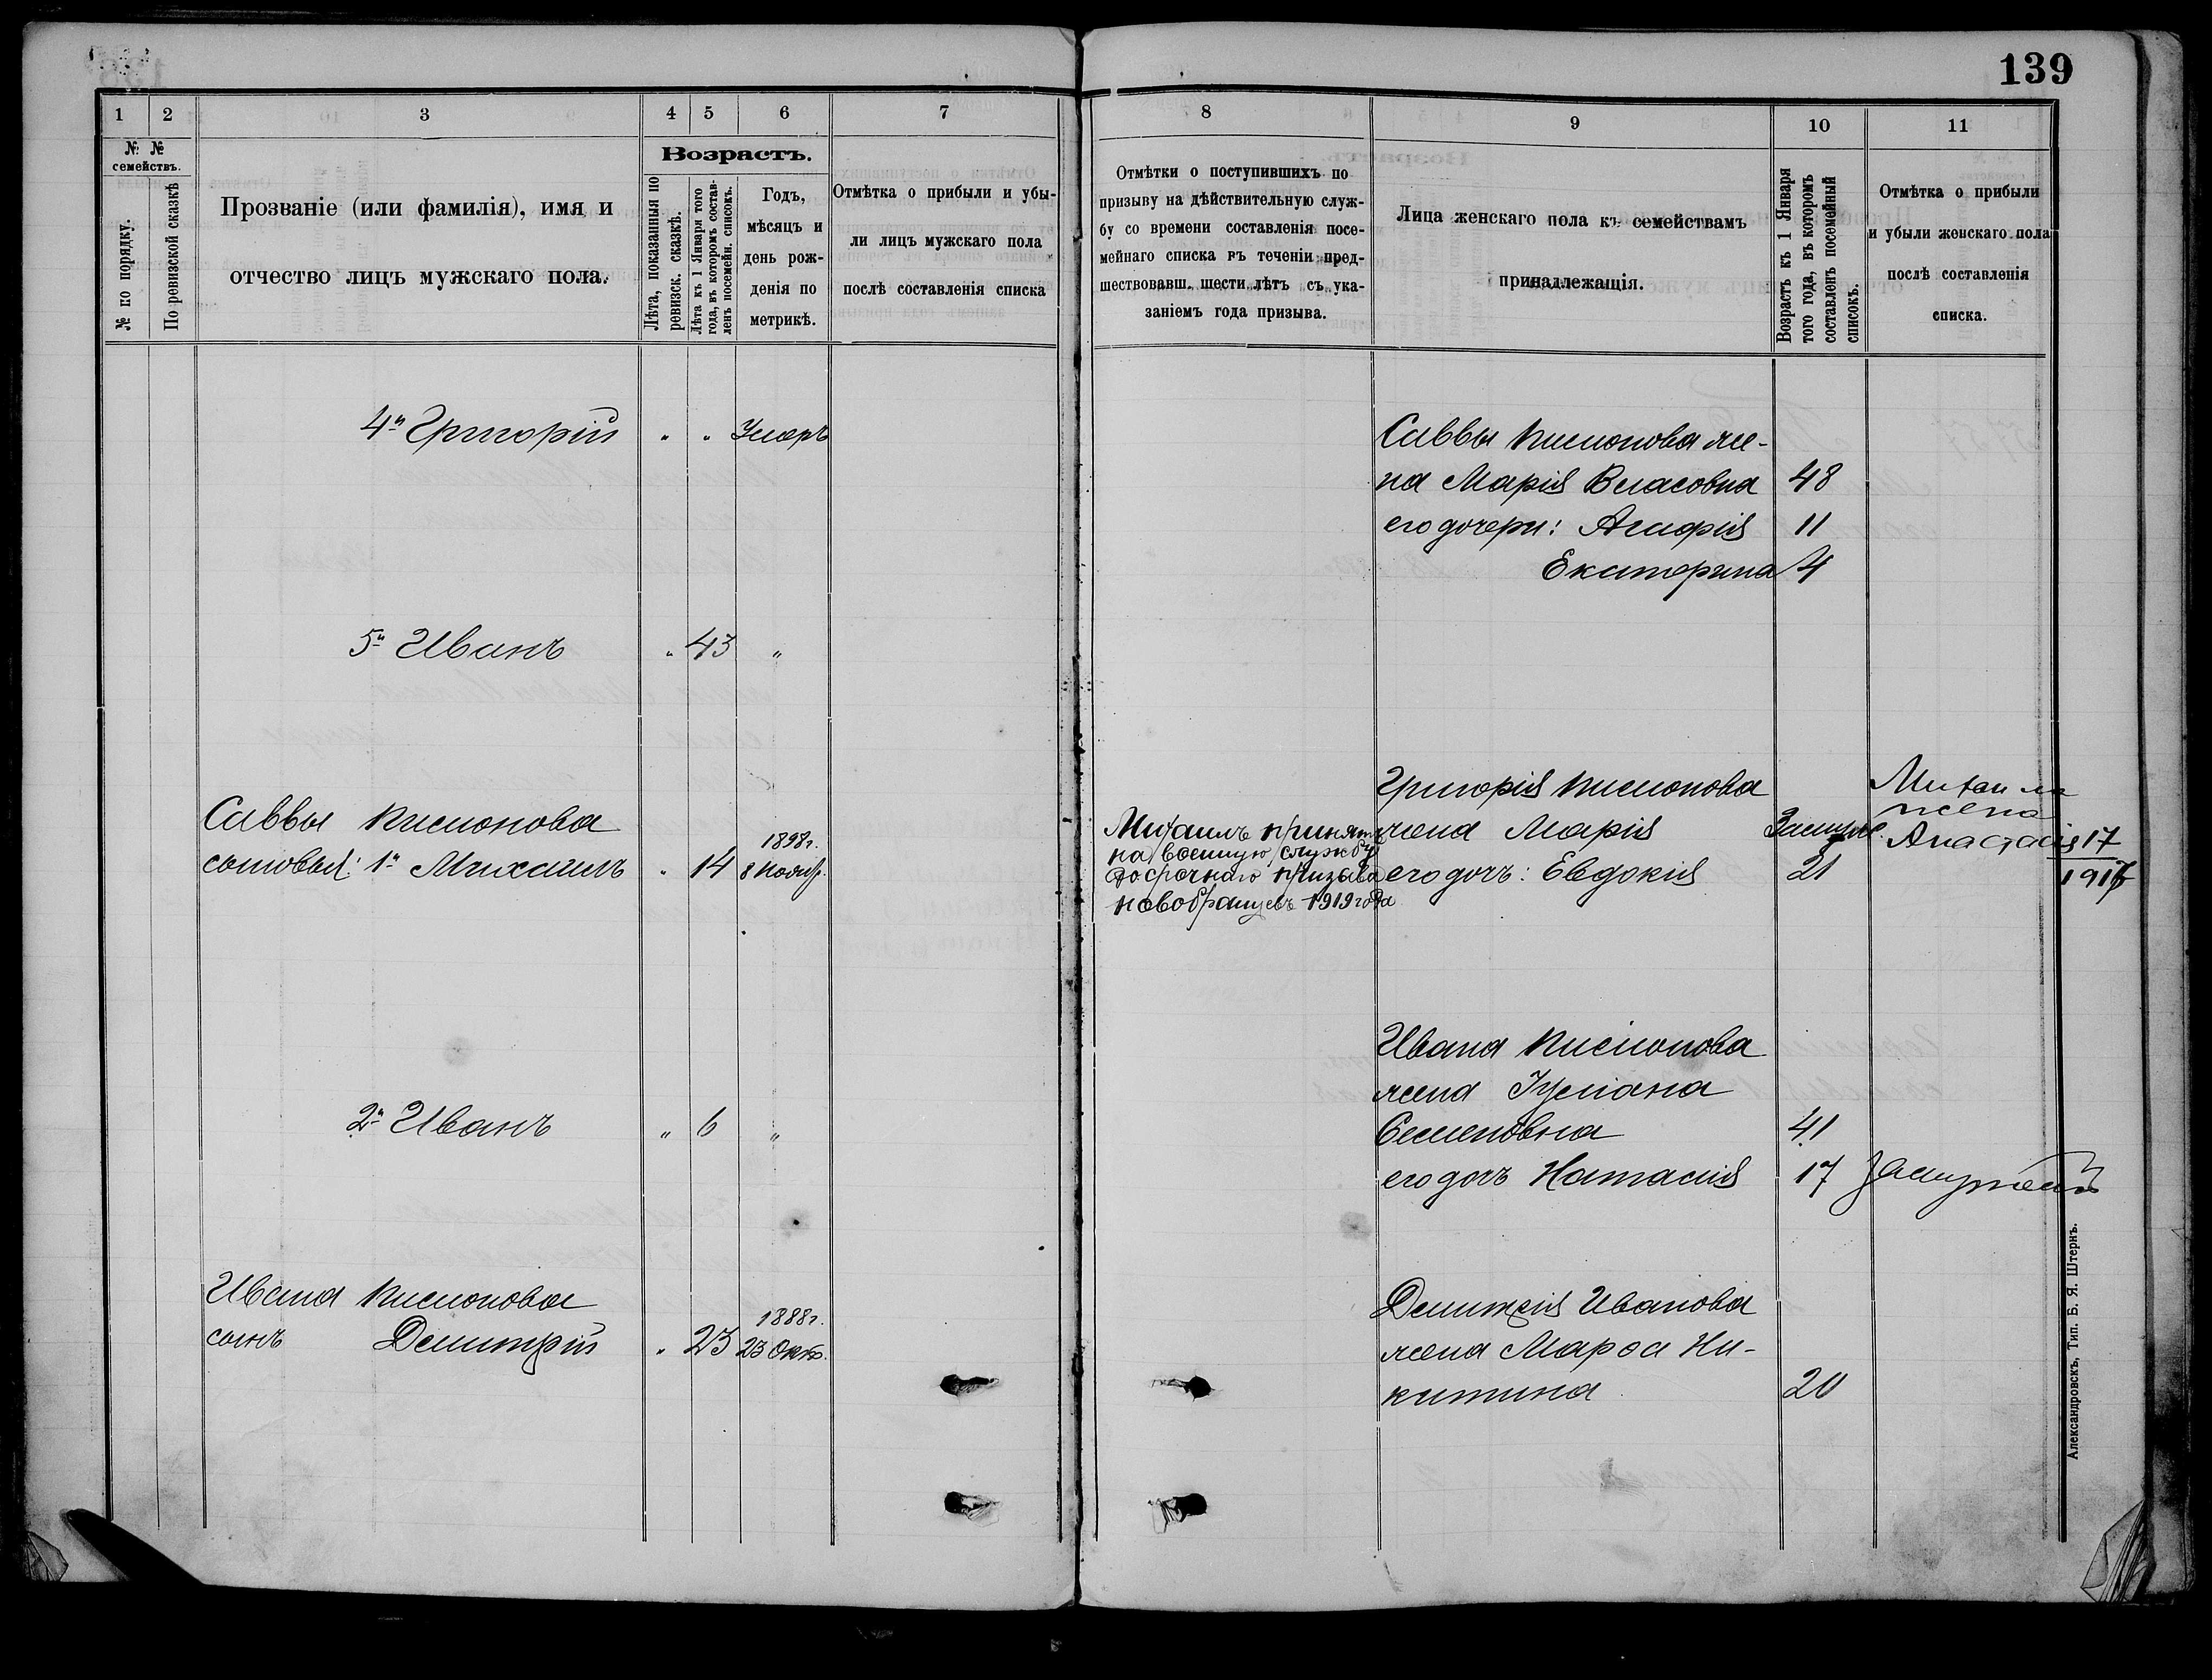 139
1 2 3 4 5 6 7
№ № семействъ.
№ по порядку.
По ревизской сказкѣ
Прозваніе (или фамилія), имя и
отчество лицъ мужскаго пола.
Возрастъ.
Лѣта, показанныя по
ревизск. сказкѣ.
Лѣта къ 1 Января того
года, въ которомъ состав-
ленъ посемейн. списокъ.
Годъ,
мѣсяцъ и
день рож-
денія по
метрикѣ.
Отмѣтка о прибыли и убы-
ли лицъ мужскаго пола
послѣ составленія списка
4й Григорій " " Умеръ
5й Иванъ " 43 "
Саввы
1898г.
сыновья: 1й Михаилъ " 14 8 Ноябр.
2й Иванъ " 6 "
Ивана
1888г.
сынъ Димитрій " 23 23 Октб.
8 9 10 11
Отмѣтки о поступившихъ по
призыву на дѣйствительную служ-
бу со времени составленія посе-
мейнаго списка въ теченіи пред-
шествовавш. шести лѣтъ съ ука-
заніемъ года призыва.
Лица женскаго пола къ семействамъ
принадлежащія.
Возрастъ къ 1 Января
того года, въ которомъ
составленъ посемейный
списокъ.
Отмѣтка о прибыли
и убыли женскаго пола
послѣ составленія
списка.
Саввы же-
на Марія Власовна 48
его дочери: 11
Екатерина 4
Михаилъ принятъ
на военную службу
досрочнаго призыва
новобранцевъ 1919 года
Григорія
жена Марія Замуж.
его дочь: Евдокія 21
Михаила
жена
Анастасія 17
1917
Ивана
жена Іуліана
Семеновна 41
его дочь Наталія 17 Замужемъ
Димитрія Иванова
жена Марѳа Ни-
китина 20
Александровскъ, Тип. Б. Я. Штернъ.